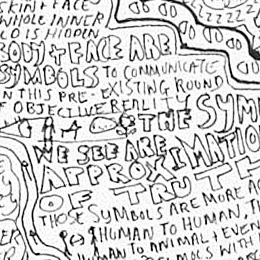 SKIN + FACE
WHOLE INNER
LD IS HIDDEN
BODY + FACE ARE
SYMBOLS TO COMMUNICATE
IN THIS PRE-EXISTING ROUND
OF OBJECTIVE REALITY
THE SYM
WE SEE ARE
APPROXIMATIO
OF TRUTH
THOSE SYMBOLS ARE MORE AC
HUMAN TO HUMAN, TH
HUMAN TO ANIMAL + EVEN
WITH